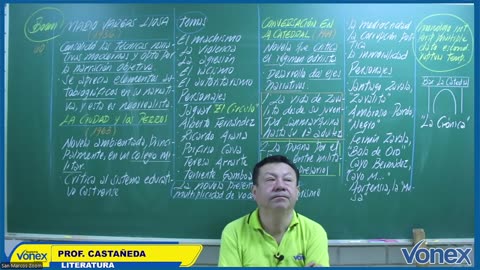 Boom
MARIO VARGAS LLOSA
(1936)
Consolidó las técnicas narra-
tivas modernas y optó por
la narración objetiva.
Se aprecia elementos au-
tobiográficos en su narrati-
va, y esto es neorrealista.
LA CIUDAD Y LOS PERROS
(1963)
Novela ambientada, princi-
palmente, en un colegio mi-
litar.
Crítica al sistema educati-
vo castrense
Temas
El machismo
La violencia
La agresión
El racismo
El autoritarismo
Personajes
Jaguar "El Círculo"
Alberto Fernández
Ricardo Arana
Porfirio Cava
Teresa Arrarte
Teniente Gamboa
La novela
multiplicidad de
CONVERSACIÓN EN
LA CATEDRAL (1969)
Novela que critica
el régimen odriísta
Desarrolla dos ejes
narrativos.
1. La vida de Zava-
lita desde su
sanmarquina
hasta su
2. La pugna por el
la mediocridad
la corrupción polí-
tica
la inmoralidad
Personajes
Santiago Zavala,
"Zavalita"
Ambrosio Pardo,
"Negro"
Fermín Zavala,
"Bola de Oro"
Cayo Bermúdez,
"Cayo M..."
Hortensia, la "Mu-
sa"
Bar La Catedral
"La Crónica"
Vonex
San Marcos Zoom
PROF. CASTAÑEDA
LITERATURA
vonex
vonex